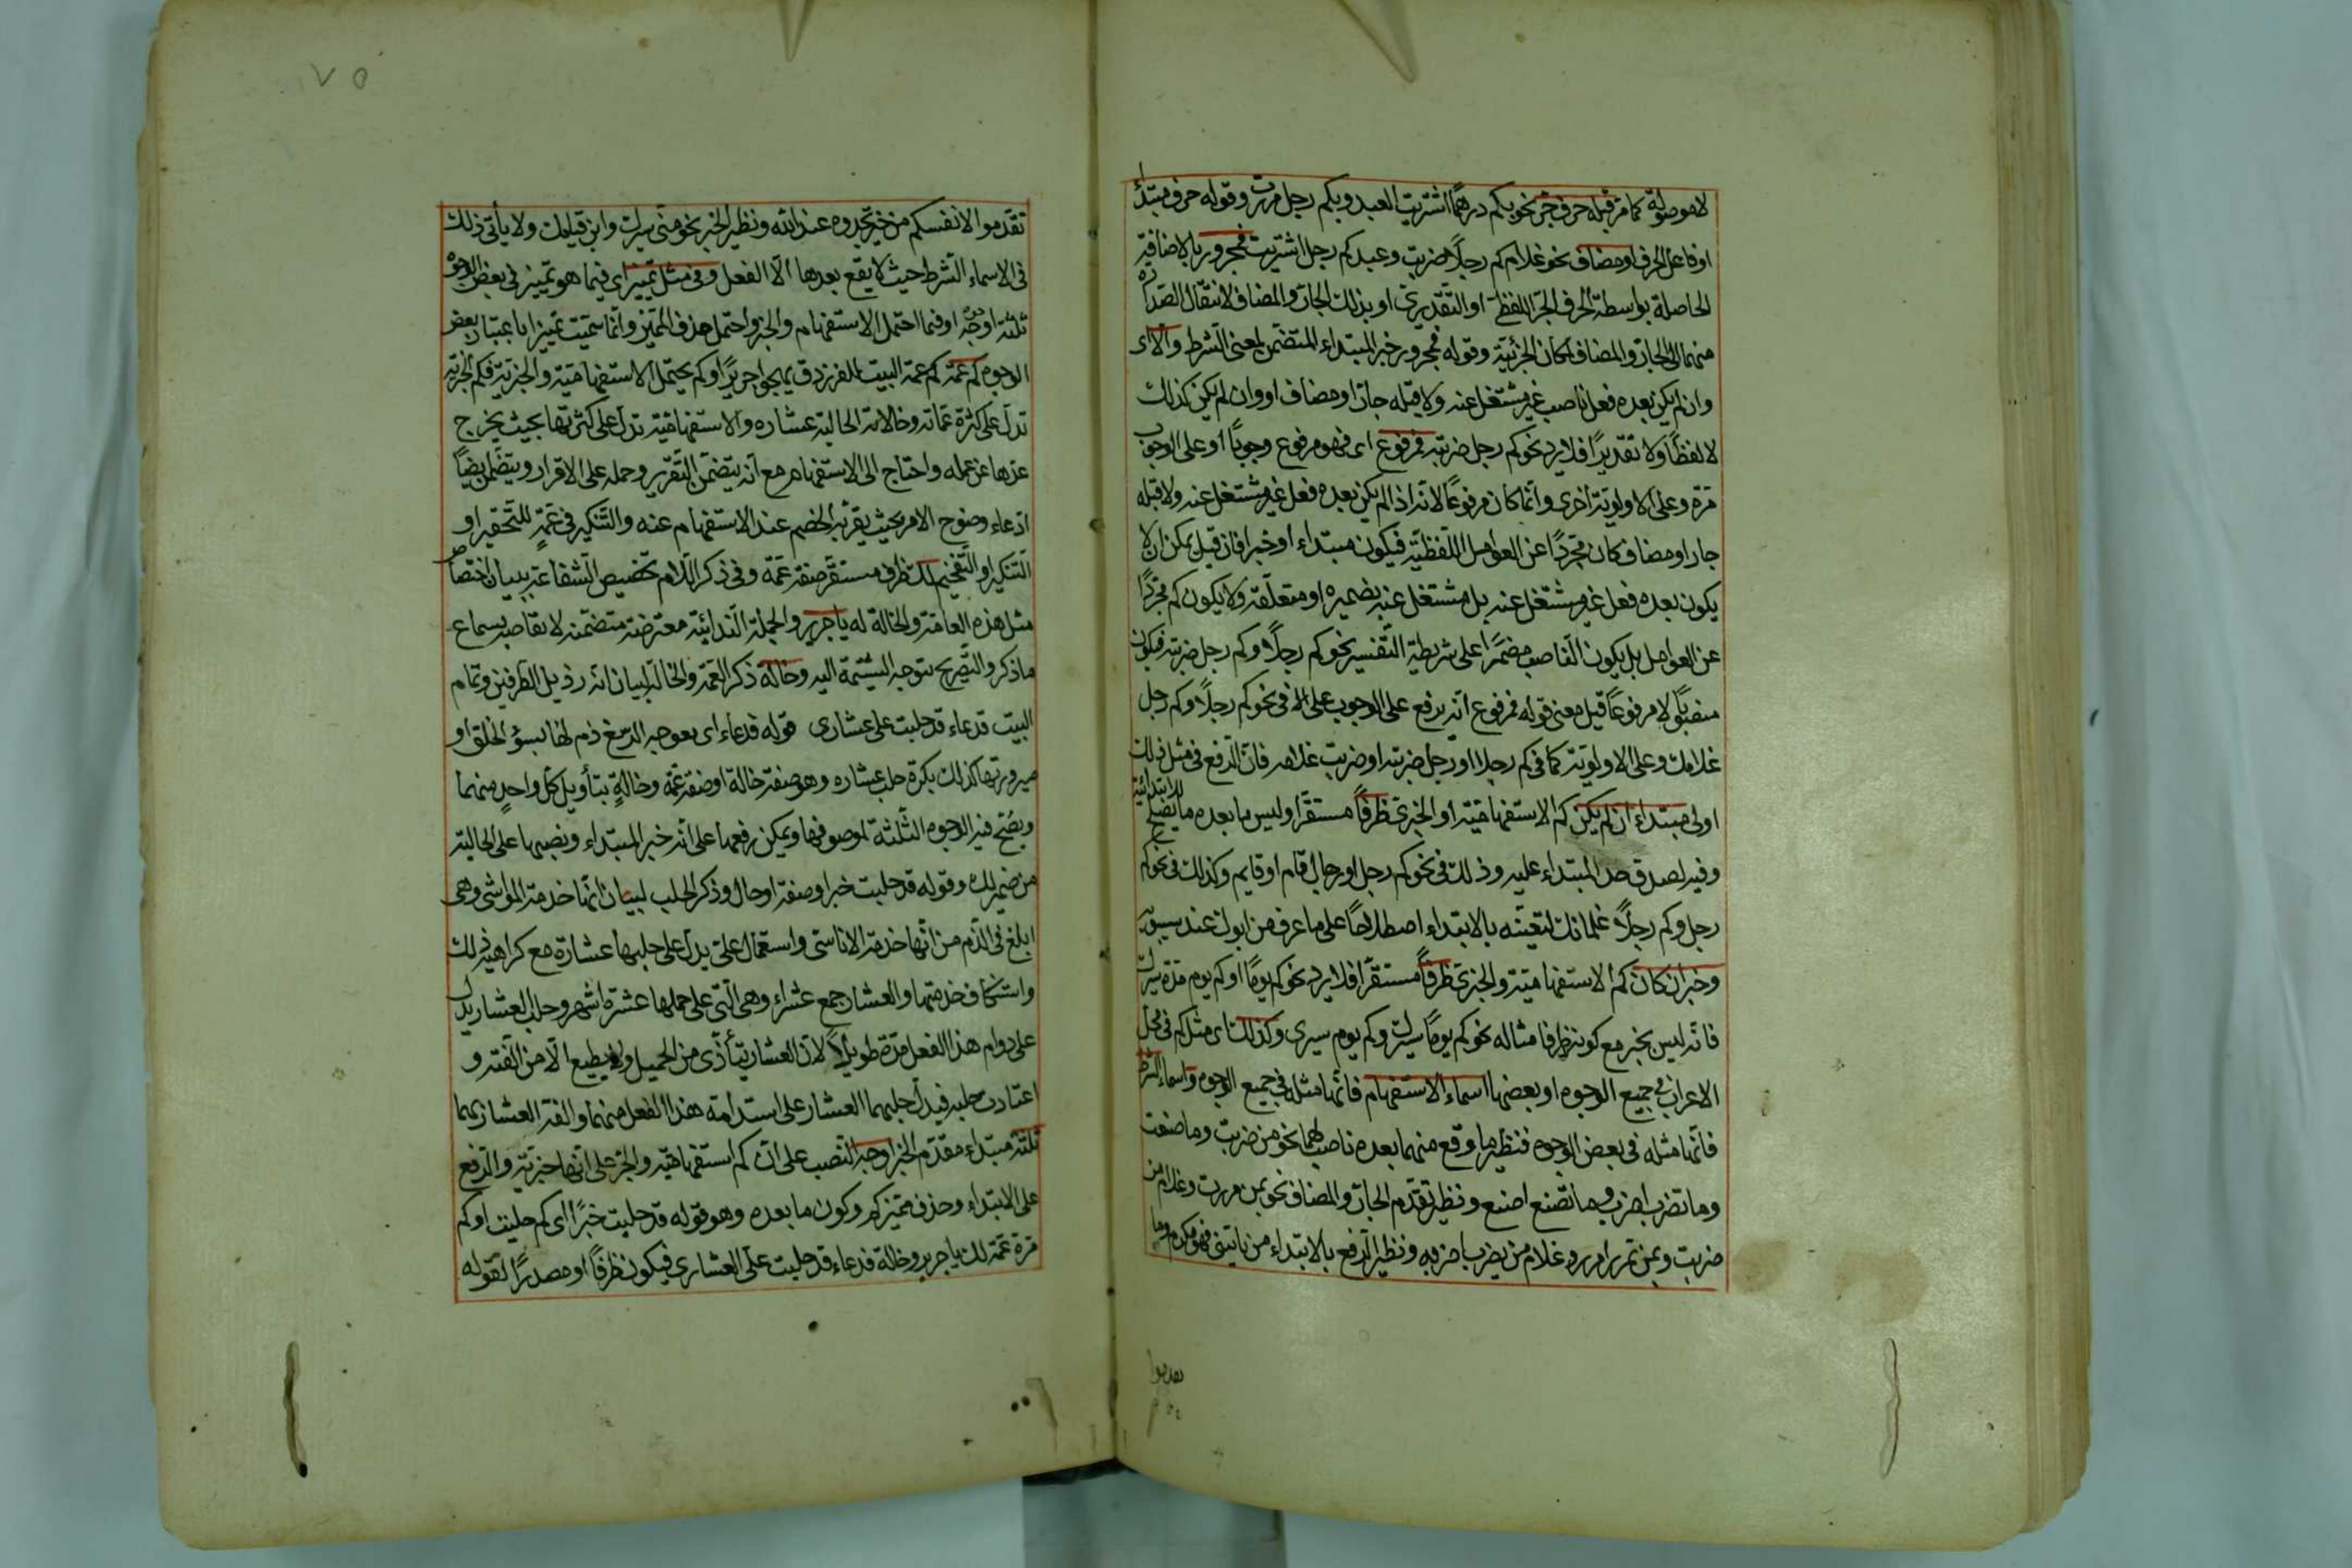 لا موصولة كما مر قبله حرف جر نحو بكم درهمًا اشتريت العبد وبكم رجل مررت وقوله حرف مبتدأ
او فاعل الحرف او مضاف نحو غلام كم رجلًا ضربت وعبد كم رجل اشتريت فمجرور بالاضافة
الحاصلة بواسطة الحرف الجر اللفظى او التقديرى او بذلك الجار والمضاف لانتقال الصدارة
منهما الى الجار والمضاف لمكان الجزئية وقوله فمجرور خبر المبتداء المتضمن لمعنى الشرط والا اى
وان لم يكن بعده فعل ناصب غير مشتغل عنه ولا قبله جار او مضاف او وان لم يكن كذلك
لا لفظًا ولا تقديرًا فلا يرد نحو كم رجل ضربته فمرفوع اى فهو مرفوع وجوبًا او على الوجوب
مرة وعلى الاولوية اخرى وانما كان مرفوعًا لانه اذا لم يكن بعده فعل غير مشتغل عنه ولا قبله
جار او مضاف كان مجردًا عن العوامل اللفظية فيكون مبتداء او خبرا فان قيل يمكن ان لا
يكون بعده فعل غير مشتغل عنه بل مشتغل عنه بضميره او متعلقه ولا يكون كم مجردًا
عن العوامل بل يكون الناصب مضمرا على شريطة التفسير نحو كم رجلًا وكم رجل ضربته فيكون
منصوبًا لا مرفوعًا قيل معنى قوله فمرفوع انه يرفع على الوجوب على الا فى نحو كم رجلًا وكم رجل
غلامك وعلى الاولوية كما فى كم رجلا او رجل ضربته او ضربت غلامه فان الرفع فى مثل ذلك
اولى مبتداء ان لم يكن كم الاستفهامية او الخبرى ظرفًا مستقرا وليس ما بعده ما يصلح للابتدائية
وفيه لصدق حد المبتداء عليه وذلك فى نحو كم رجل او رجال قام او قايم وكذلك فى نحو كم
رجل وكم رجلًا غلمانك لتعينه بالابتداء اصطلاحًا على ما عرف من ابوك عند سيبويه
وخبر ان كان كم الاستفهامية والخبرى ظرفًا مستقرا فلا يرد نحو كم يومًا او كم يوم مرة سرت
فانه ليس بخبر مع كونه ظرفا مثاله نحو كم يومًا سيرك وكم يوم سيرى وكذلك اى مثل كم فى محل
الاعراب فى جميع الوجوه او بعضها اسماء الاستفهام فانها مثله فى جميع الوجوه واسماء الشرط
فانها مثله فى بعض الوجوه فنظير ما وقع منهما بعده ناصب لهما نحو من ضربت وما صنعت
وما تضرب اضرب وما تصنع اصنع ونظير تقدم الجار والمضاف نحو بمن مررت وغلام من
ضربت وبمن تمرر امرر وغلام من يضرب اضربه ونظير الرفع بالابتداء من ياتينى فهو مكرم وما
تقدموا
٧٥
تقدموا لانفسكم من خير تجدوه عند الله ونظير الخبر نحو متى سيرك واين قيامك ولا يأتى ذلك
فى الاسماء الشرط حيث لا يقع بعدها الا الفعل وفى مثل تمييز اى فيما هو تمييز فى بعض الوجوه
ثلثة اوجه او فيما احتمل الاستفهام والخبر واحتمل حذف المميز وانما سميت تمييزا باعتبار بعض
الوجوه كم عمة كم عمة البيت للفرزدق يهجوا جريرًا وكم يحتمل الاستفهامية والخبرية فكم الخبرية
تدل على كثرة عماته وخالاته الحالبة عشاره والاستفهامية تدل على كثرتها بحيث يخرج
عدها عن علمه واحتاج الى الاستفهام مع انه يتضمن التقرير وحمله على الاقرار ويتضمن ايضًا
ادعاء وضوح الامر بحيث يقر به الخصم عند الاستفهام عنه والتنكير فى عمة للتحقير او
التنكير او التفخيم لك ظرف مستقر صفة عمة وفى ذكر اللام تخصيص الشفاعة ببيان اختصاص
مثل هذه العامة والخالة له يا جرير والجملة الندائية معترضة متضمنة لايقاصه بسماع
ما ذكر والتصريح بتوجه الشتيمة اليه وخالة ذكر العمة والخالة لبيان انه رذيل الطرفين وتمام
البيت فدعاء قد حلبت على عشارى قوله فدعاء اى معوجة الرسغ ذم لها لسوء الخلق او
صيرورتها كذلك بكثرة حلب عشاره وهو صفة خالة او صفة عمة وخالة بتأويل كل واحد منهما
ويصح فيه الوجوه الثلثة لموصوفها ويمكن رفعها على انه خبر المبتداء ونصبها على الحالية
من ضمير لك وقوله قد حلبت خبر او صفة او حال وذكر الحلب لبيان انها خدمة المواشى وهى
ابلغ فى الذم من انها خدمة الاناسى واستعمال على يدل على حلبها عشاره مع كراهية ذلك
واستنكاف خدمتها والعشار جمع عشراء وهى التى على حملها عشرة اشهر وحلب العشار يدل
على دوام هذا الفعل مدة طويلًا لان العشار يتأذى من الحميل ولا يطيع الا من الفته و
اعتادت حلبه فيدل حلبهما العشار على استدامة هذا الفعل منهما والفة العشار بهما
ثلثة مبتداء مقدم الخبر اوجه النصب على ان كم استفهامية والجر على انها خبرية والرفع
على الابتداء وحذف مميز كم وكون ما بعده وهو قوله قد حلبت خبرًا اى كم حلبت او كم
مرة عمة لك يا جرير وخالة فدعاء قد حلبت على العشارى فيكون ظرفًا او مصدرًا لقوله